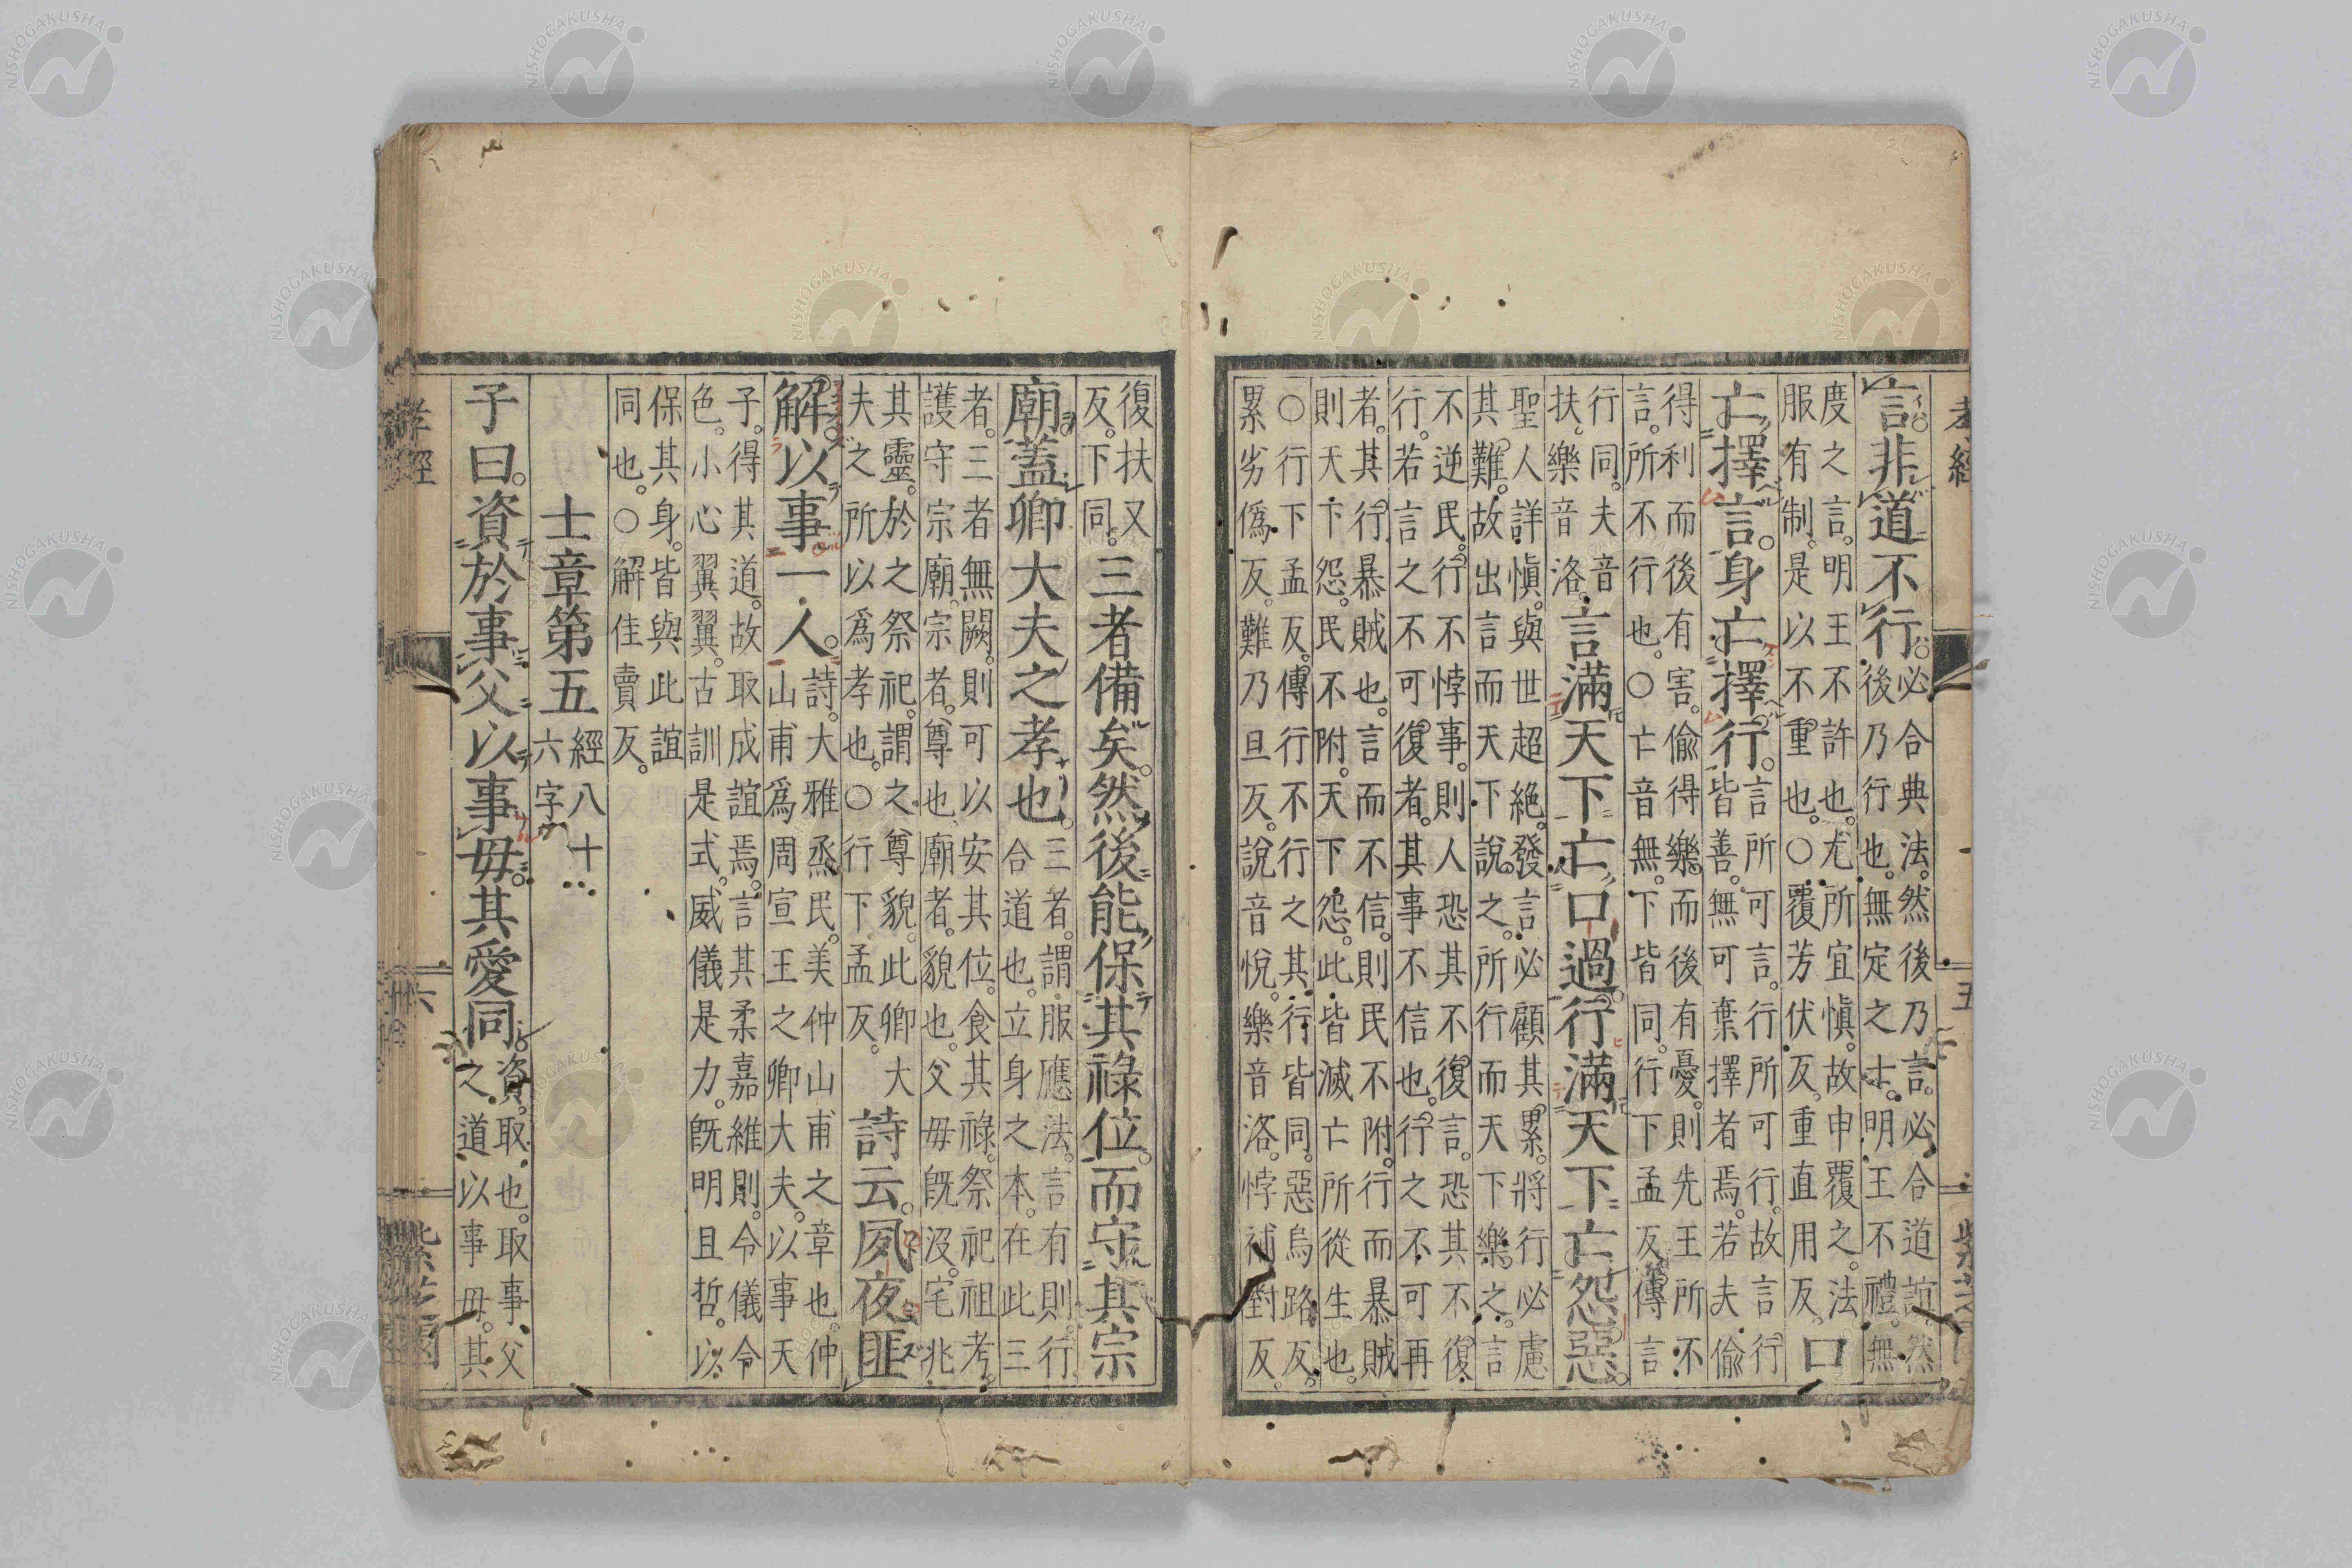 孝經
五
言。非道不行。
必合典法。然後乃言。必合道誼。然
後乃行也。無定之士。明王不禮。無
度之言。明王不許也。尤所宜愼。故申覆之。法
服有制。是以不重也。○覆芳伏反。重直用反。
口
亡擇言。身亡擇行。
言所可言。行所可行。故言行
皆善。無可棄擇者焉。若夫偷
得利而後有害。偷得樂。而後有憂。則先王所不
言。所不行也。○亡音無。下皆同。行下孟反。傳言
行同。夫音
扶。樂音洛。
言滿天下亡口過。行滿天下亡怨惡。
聖人詳愼。與世超絕。發言必顧其累。將行必慮
其難。故出言而天下說之。所行而天下樂之。言
不逆民。行不悖事。則人恐其不復言。恐其不復
行。若言之不可復者。其事不信也。行之不可再
者。其行暴賊也。言而不信。則民不附。行而暴賊
則天下怨。民不附。天下怨。此皆滅亡所從生也。
○行下孟反。傳行不行之其行皆同。惡烏路反。
累劣僞反。難乃旦反。說音悅。樂音洛。悖補對反。
復扶又
反。下同。
三者備矣。然後能保其祿位。而守其宗
廟。蓋卿大夫之孝也。
三者。謂服應法。言有則。行
合道也。立身之本。在此三
者。三者無闕。則可以安其位。食其祿。祭祀祖考。
護守宗廟。宗者。尊也。廟者。貌也。父毋既沒。宅兆
其靈。於之祭祀。謂之尊貌。此卿大
夫之所以爲孝也。○行下孟反。
詩云。夙夜匪
解。以事一人。
詩。大雅烝民。美仲山甫之章也。仲
山甫爲周宣王之卿大夫。以事天
子。得其道。故取成誼焉。言其柔嘉維則。令儀令
色。小心翼翼。古訓是式。威儀是力。既明且哲。以
保其身。皆與此誼
同也。○解佳賣反。
士章第五
經八十
六字
子曰。資於事父以事毋。其愛同。
資。取也。取事父
之道以事毋。其
孝經
六
紫芝園
NISHOGAKUSHA